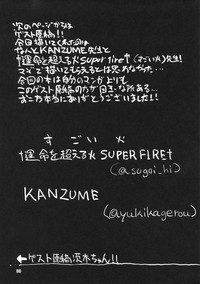 次のページからは
ゲスト原稿!!
今回描いてくれたのは
なんとKANZUME先生と
†運命を超える火 super fire†(すごい火)先生!
マジで描いてもらえるとは思わなかった…
今回の本は自分のマンガよりも
このゲスト原稿の方が
本当にありがとうございました!!
すごい火
†運命を超える火 SUPER FIRE†
(@sugoi_hi)
KANZUME
(@yukikagerou)
←ゲスト原稿茨木ちゃん!!